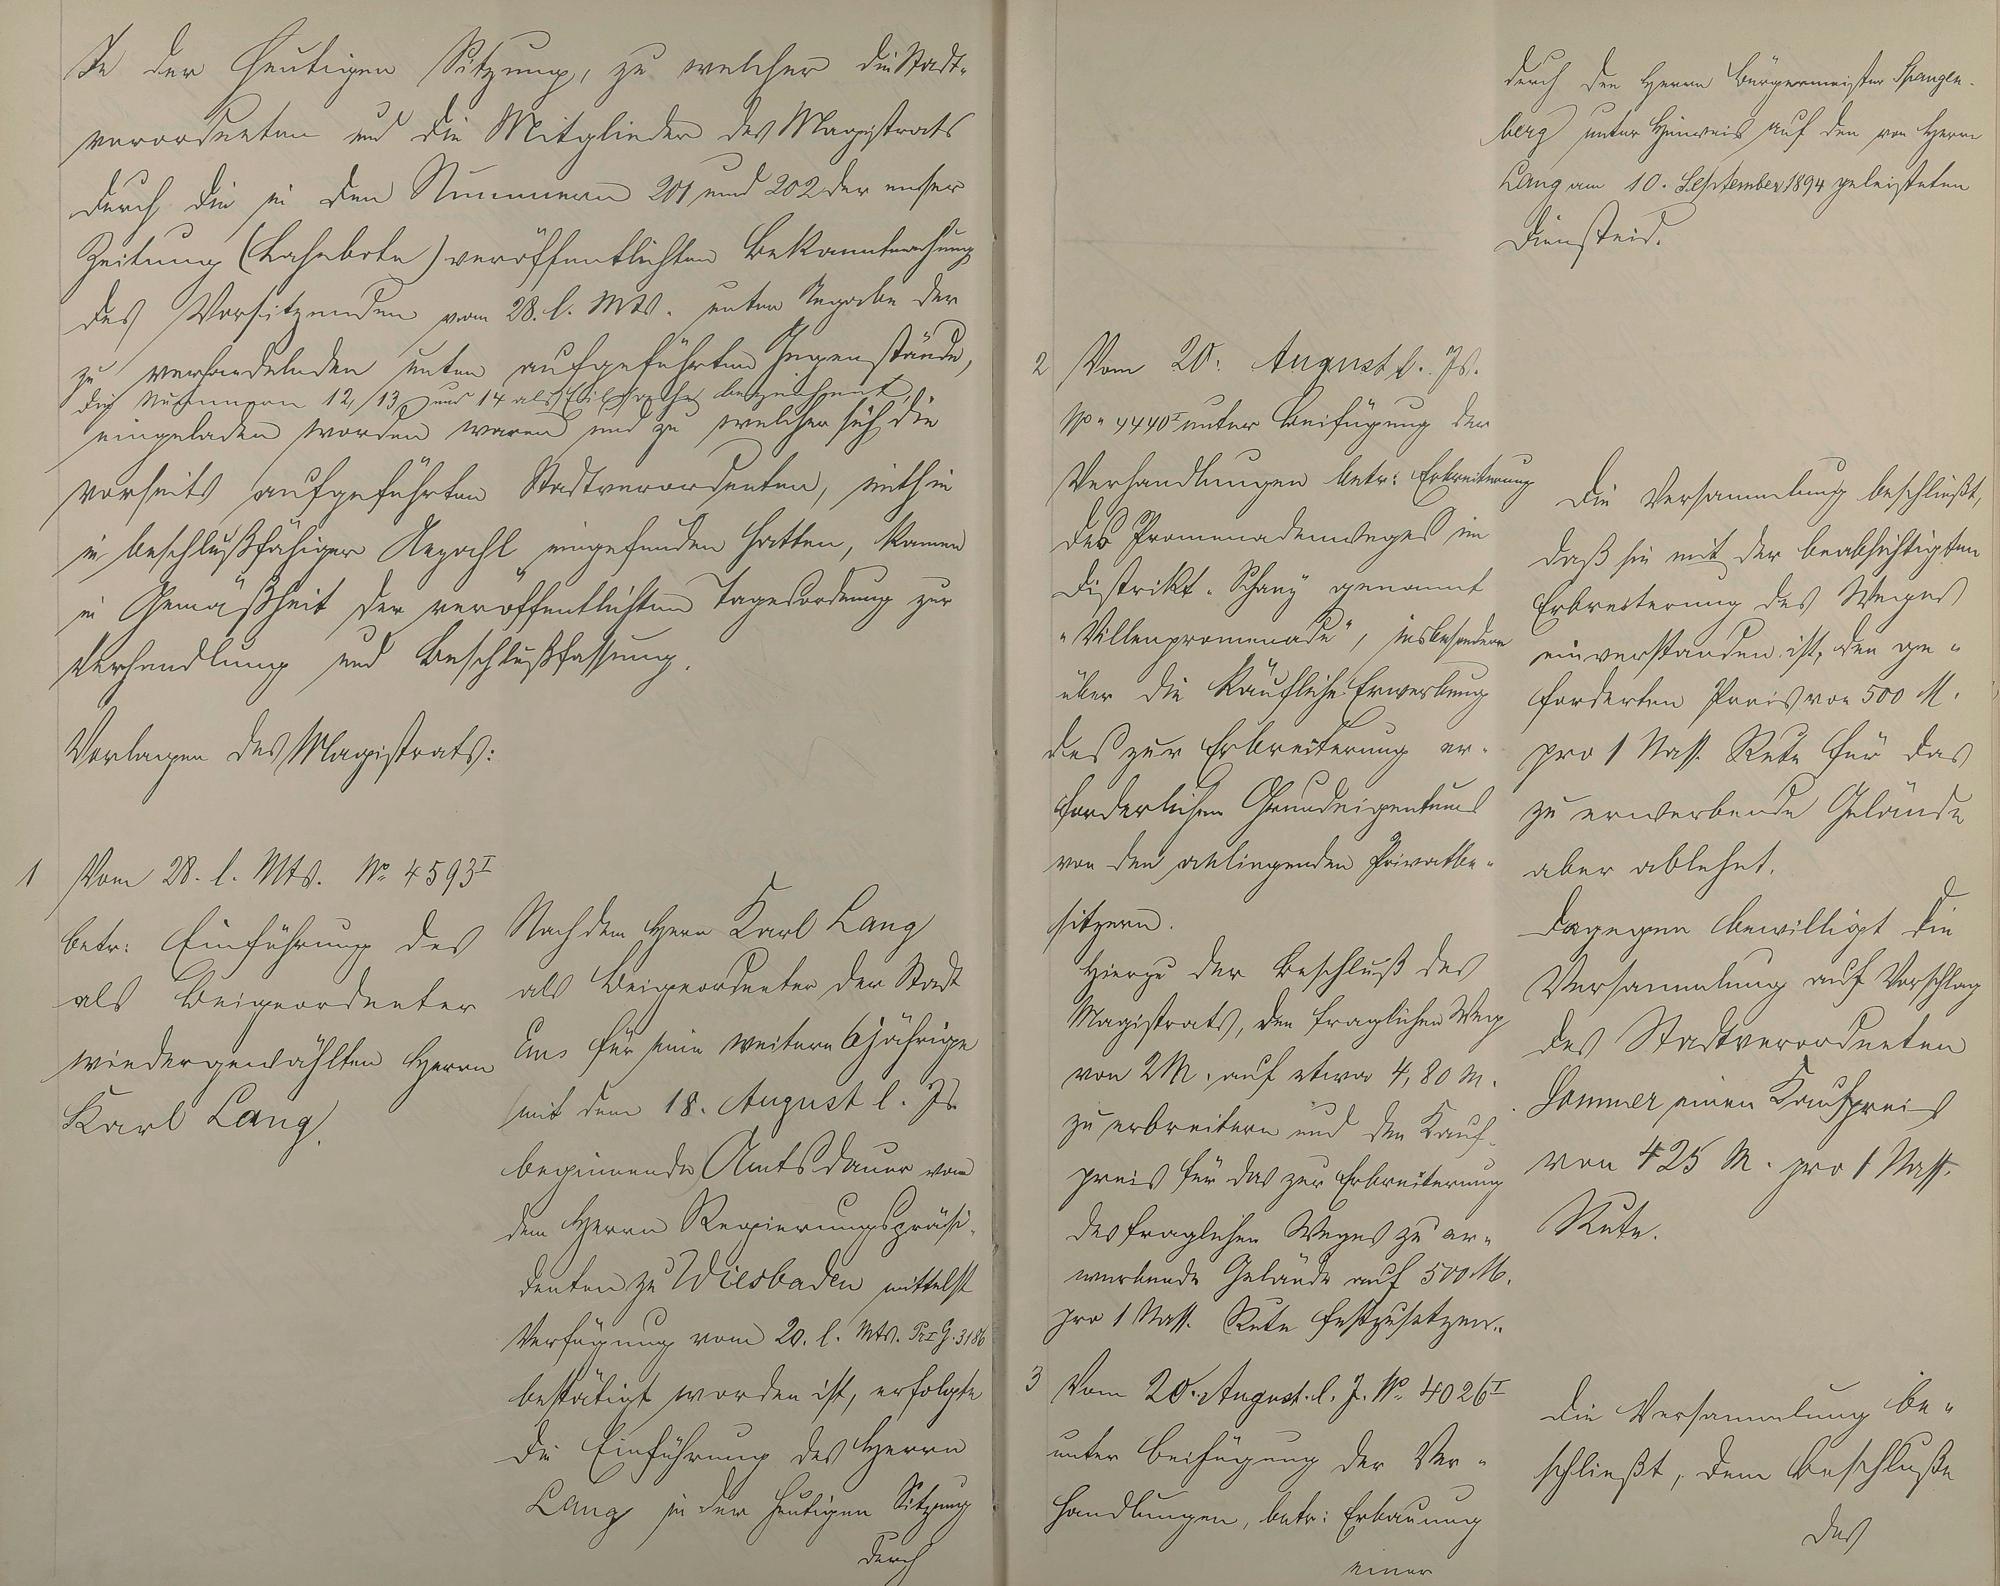 In der heutigen Sitzung, zu welcher die Stadt-
verordneten und die Mitglieder des Magistrats
durch die in den Nummern 201 und 202 der Emser
Zeitung (Lahnbote) veröffentlichten Bekanntmachung
des Vorsitzenden vom 28. l. Mts. unter Angabe der
zu verhandelnden unten aufgeführten Gegenstände,
die Nummern 12, 13, und 14 als Eilsache bezeichnet,
eingeladen worden waren und zu welcher sich die
vorseits aufgeführten Stadtverordneten, mithin
in beschlußfähiger Anzahl eingefunden hatten, kamen
in Gemäßheit der veröffentlichten Tagesordnung zur
Verhandlung und Beschlußfassung.
Vorlagen des Magistrats:
1 Vom 28. l. Mts. No 4593 I
betr: Einführung des
als Beigeordneter
wiedergewählten Herrn
Karl Lang.
Nachdem Herr Karl Lang
als Beigeordneter der Stadt
Ems für eine weitere 6jährige
mit dem 18. August l. Js.
beginnende Amtsdauer von
dem Herrn Regierungspräsi-
denten zu Wiesbaden mittelst
Verfügung vom 20. l. Mts. Pr I G. 3186
bestätigt worden ist, erfolgte
die Einführung des Herrn
Lang in der heutigen Sitzung
durch
durch den Herrn Bürgermeister Spangen-
berg unter Hinweis auf den von Herrn
Lang am 10. September 1894 geleisteten
Diensteid.
2 Vom 20. August l. Js.
No 4440 I unter Beifügung der
Verhandlungen betr: Erbreiterung
des Promenadenweges im
Distrikt genannt
"Villenpromenade", insbesondere
über die käufliche Erwerbung
des zur Erbreiterung er-
forderlichen Grundeigentums
von den anliegenden Privatbe-
sitzern.
Hierzu der Beschluß des
Magistrats, den fraglichen Weg
von 2 M. auf etwa 4,80 m.
zu erbreitern und den Kauf-
preis für das zur Erbreiterung
des fraglichen Weges zu er-
werbende Gelände auf 500 M.
pro 1 Nass. Rute festzusetzen.
Die Versammlung beschließt,
daß sie mit der beabsichtigten
Erbreiterung des Weges
einverstanden ist, den ge-
forderten Preis von 500 M.
pro 1 Nass. Rute für das
zu erwerbende Gelände
aber ablehnt.
Dagegen bewilligt die
Versammlung auf Vorschlag
des Stadtverordneten
Sommer einen Kaufpreis
von 425 M. pro 1 Nass.
Rute.
3 Vom 20. August l. J. No 4026 I
unter Beifügung der Ver-
handlungen, betr: Erbauung
einer
Die Versammlung be-
schließt, dem Beschluße
des